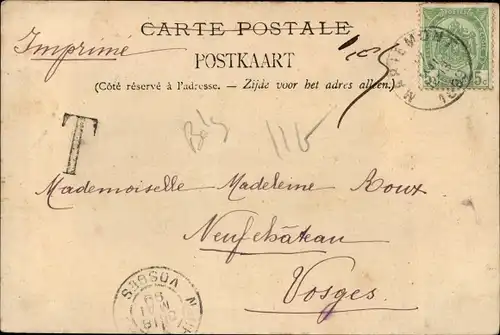 CARTE POSTALE
Imprimé
POSTKAART
(Côté réservé à l'adresse. — Zijde voor het adres alleen.)
5
5
T
Belg
115
Mademoiselle Madeleine Roux
Neufchâteau
Vosges
VOSGES